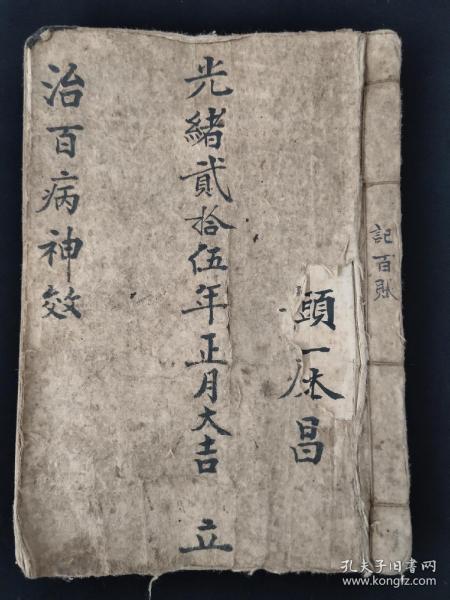 記百
頭一
昌
光緒貳拾伍年正月大吉 立
治百病神效
孔夫子旧书网
www.kongfz.com